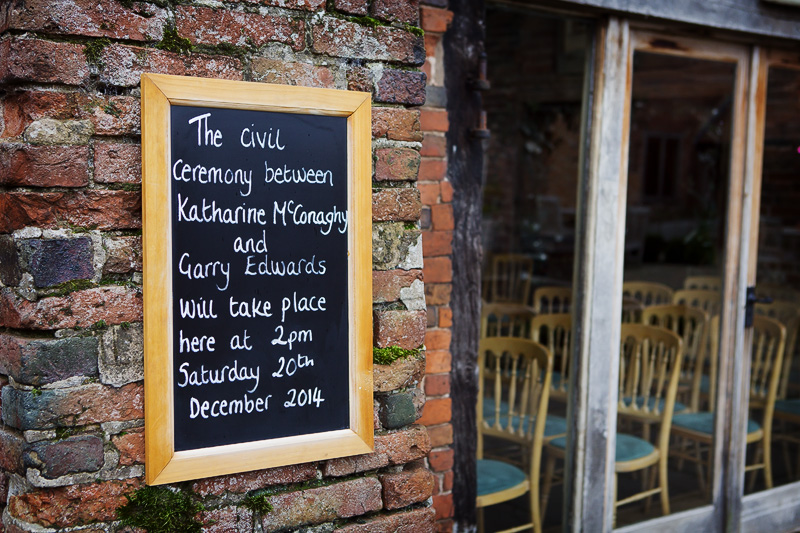 The civil
Ceremony between
Katharine McConaghy
and
Garry Edwards
Will take place
here at 2pm
Saturday 20th
December 2014